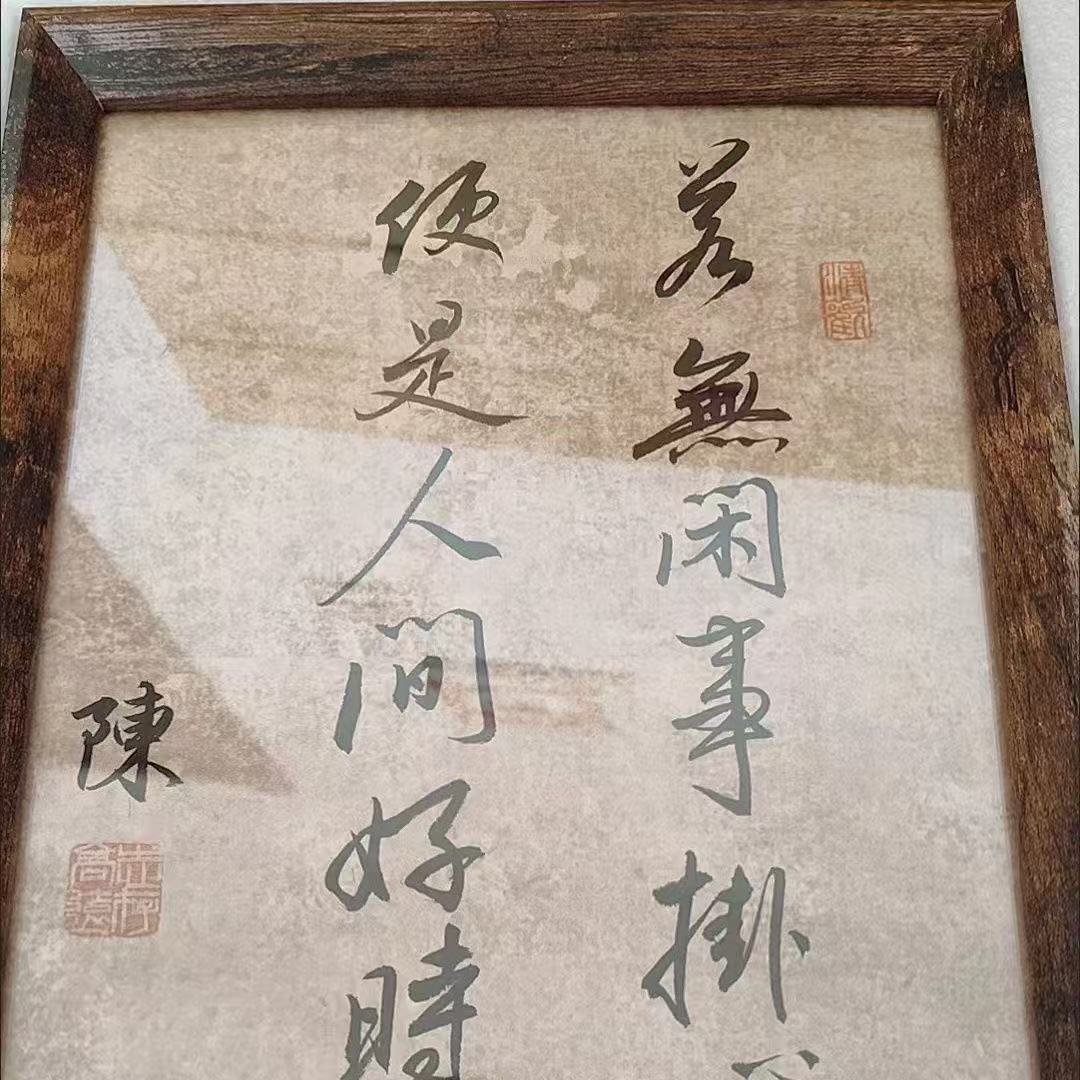 若無閑事掛
便是人間好時
陳